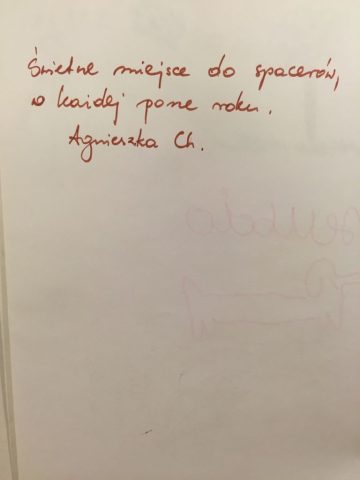 Świetne miejsce do spacerów,
w każdej porze roku.
Agnieszka Ch.